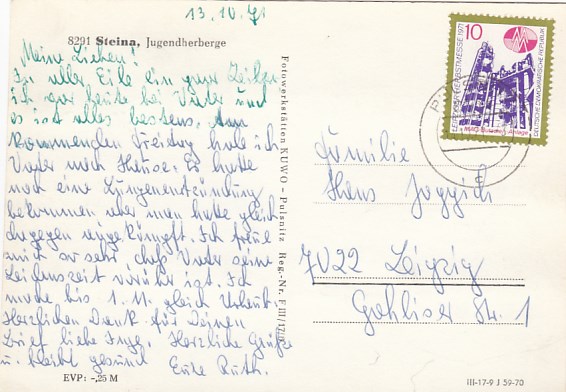 13.10.71
8291 Steina, Jugendherberge
Meine Lieben!
In aller Eile ein paar Zeilen
ich war heute bei Vater und
es ist alles bestens. Am
kommenden Freitag hole ich
Vater nach Hause. Er hatte
noch eine Lungenentzündung
bekommen aber man hatte gleich
dagegen angekämpft. Ich freue
mich so sehr daß Vater seine
Leidenszeit vorüber ist. Ich
mache bis 1.11. gleich Urlaub.
Herzlichen Dank für Deinen
Brief liebe Inge. Herzliche Grüße
u. bleibt gesund Eure Ruth.
EVP: -,25 M
Fotowerkstätten KUWO - Pulsnitz Reg.-Nr. F/III/17/
10
LEIPZIGER HERBSTMESSE 1971
DEUTSCHE DEMOKRATISCHE REPUBLIK
Familie
Hans
7022 Leipzig
Gohliser Str. 1
III-17-9 J 59-70